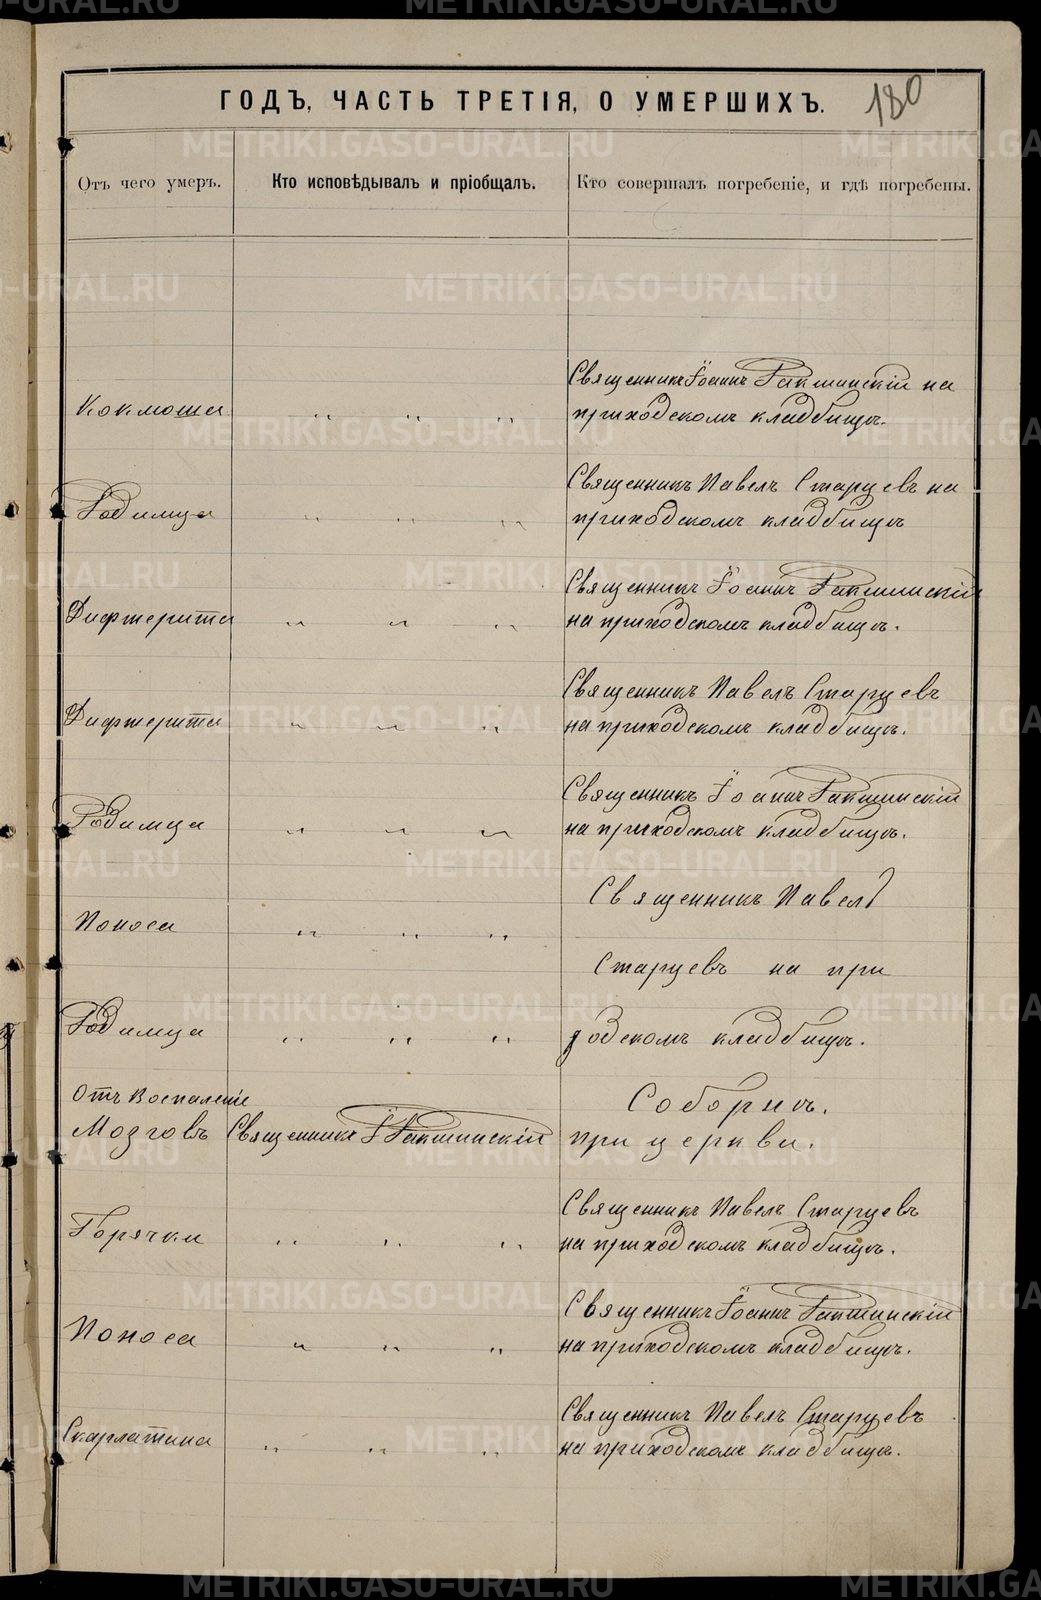 ГОДЪ, ЧАСТЬ ТРЕТІЯ, О УМЕРШИХЪ.
180
Отъ чего умеръ.
Кто исповѣдывалъ и пріобщалъ.
Кто совершалъ погребеніе, и гдѣ погребены.
Коклюша
" " "
Священникъ Іоаннъ Гакшинскій на
приходскомъ кладбищѣ.
Родимца
" " "
Священникъ Павелъ Старцевъ на
приходскомъ кладбищѣ
Дифтерита
" " "
Священникъ Іоаннъ Гакшинскій
на приходскомъ кладбищѣ.
Дифтерита
" " "
Священникъ Павелъ Старцевъ
на приходскомъ кладбищѣ.
Родимца
" " "
Священникъ Іоаннъ Гакшинскій
на приходскомъ кладбищѣ.
Поноса
" " "
Священникъ Павелъ
Старцевъ на при
Родимца
" " "
ходскомъ кладбищѣ.
Отъ Воспаленіе
Мозговъ
Священникъ І Гакшинскій
Соборнѣ.
при церкви.
Горячки
" " "
Священникъ Павелъ Старцевъ
на приходскомъ кладбищѣ.
Поноса
" " "
Священникъ Іоаннъ Гакшинскій
на приходскомъ кладбищѣ.
Скарлатина
" " "
Священникъ Павелъ Старцевъ
на приходскомъ кладбищѣ.
METRIKI.GASO-URAL.RU